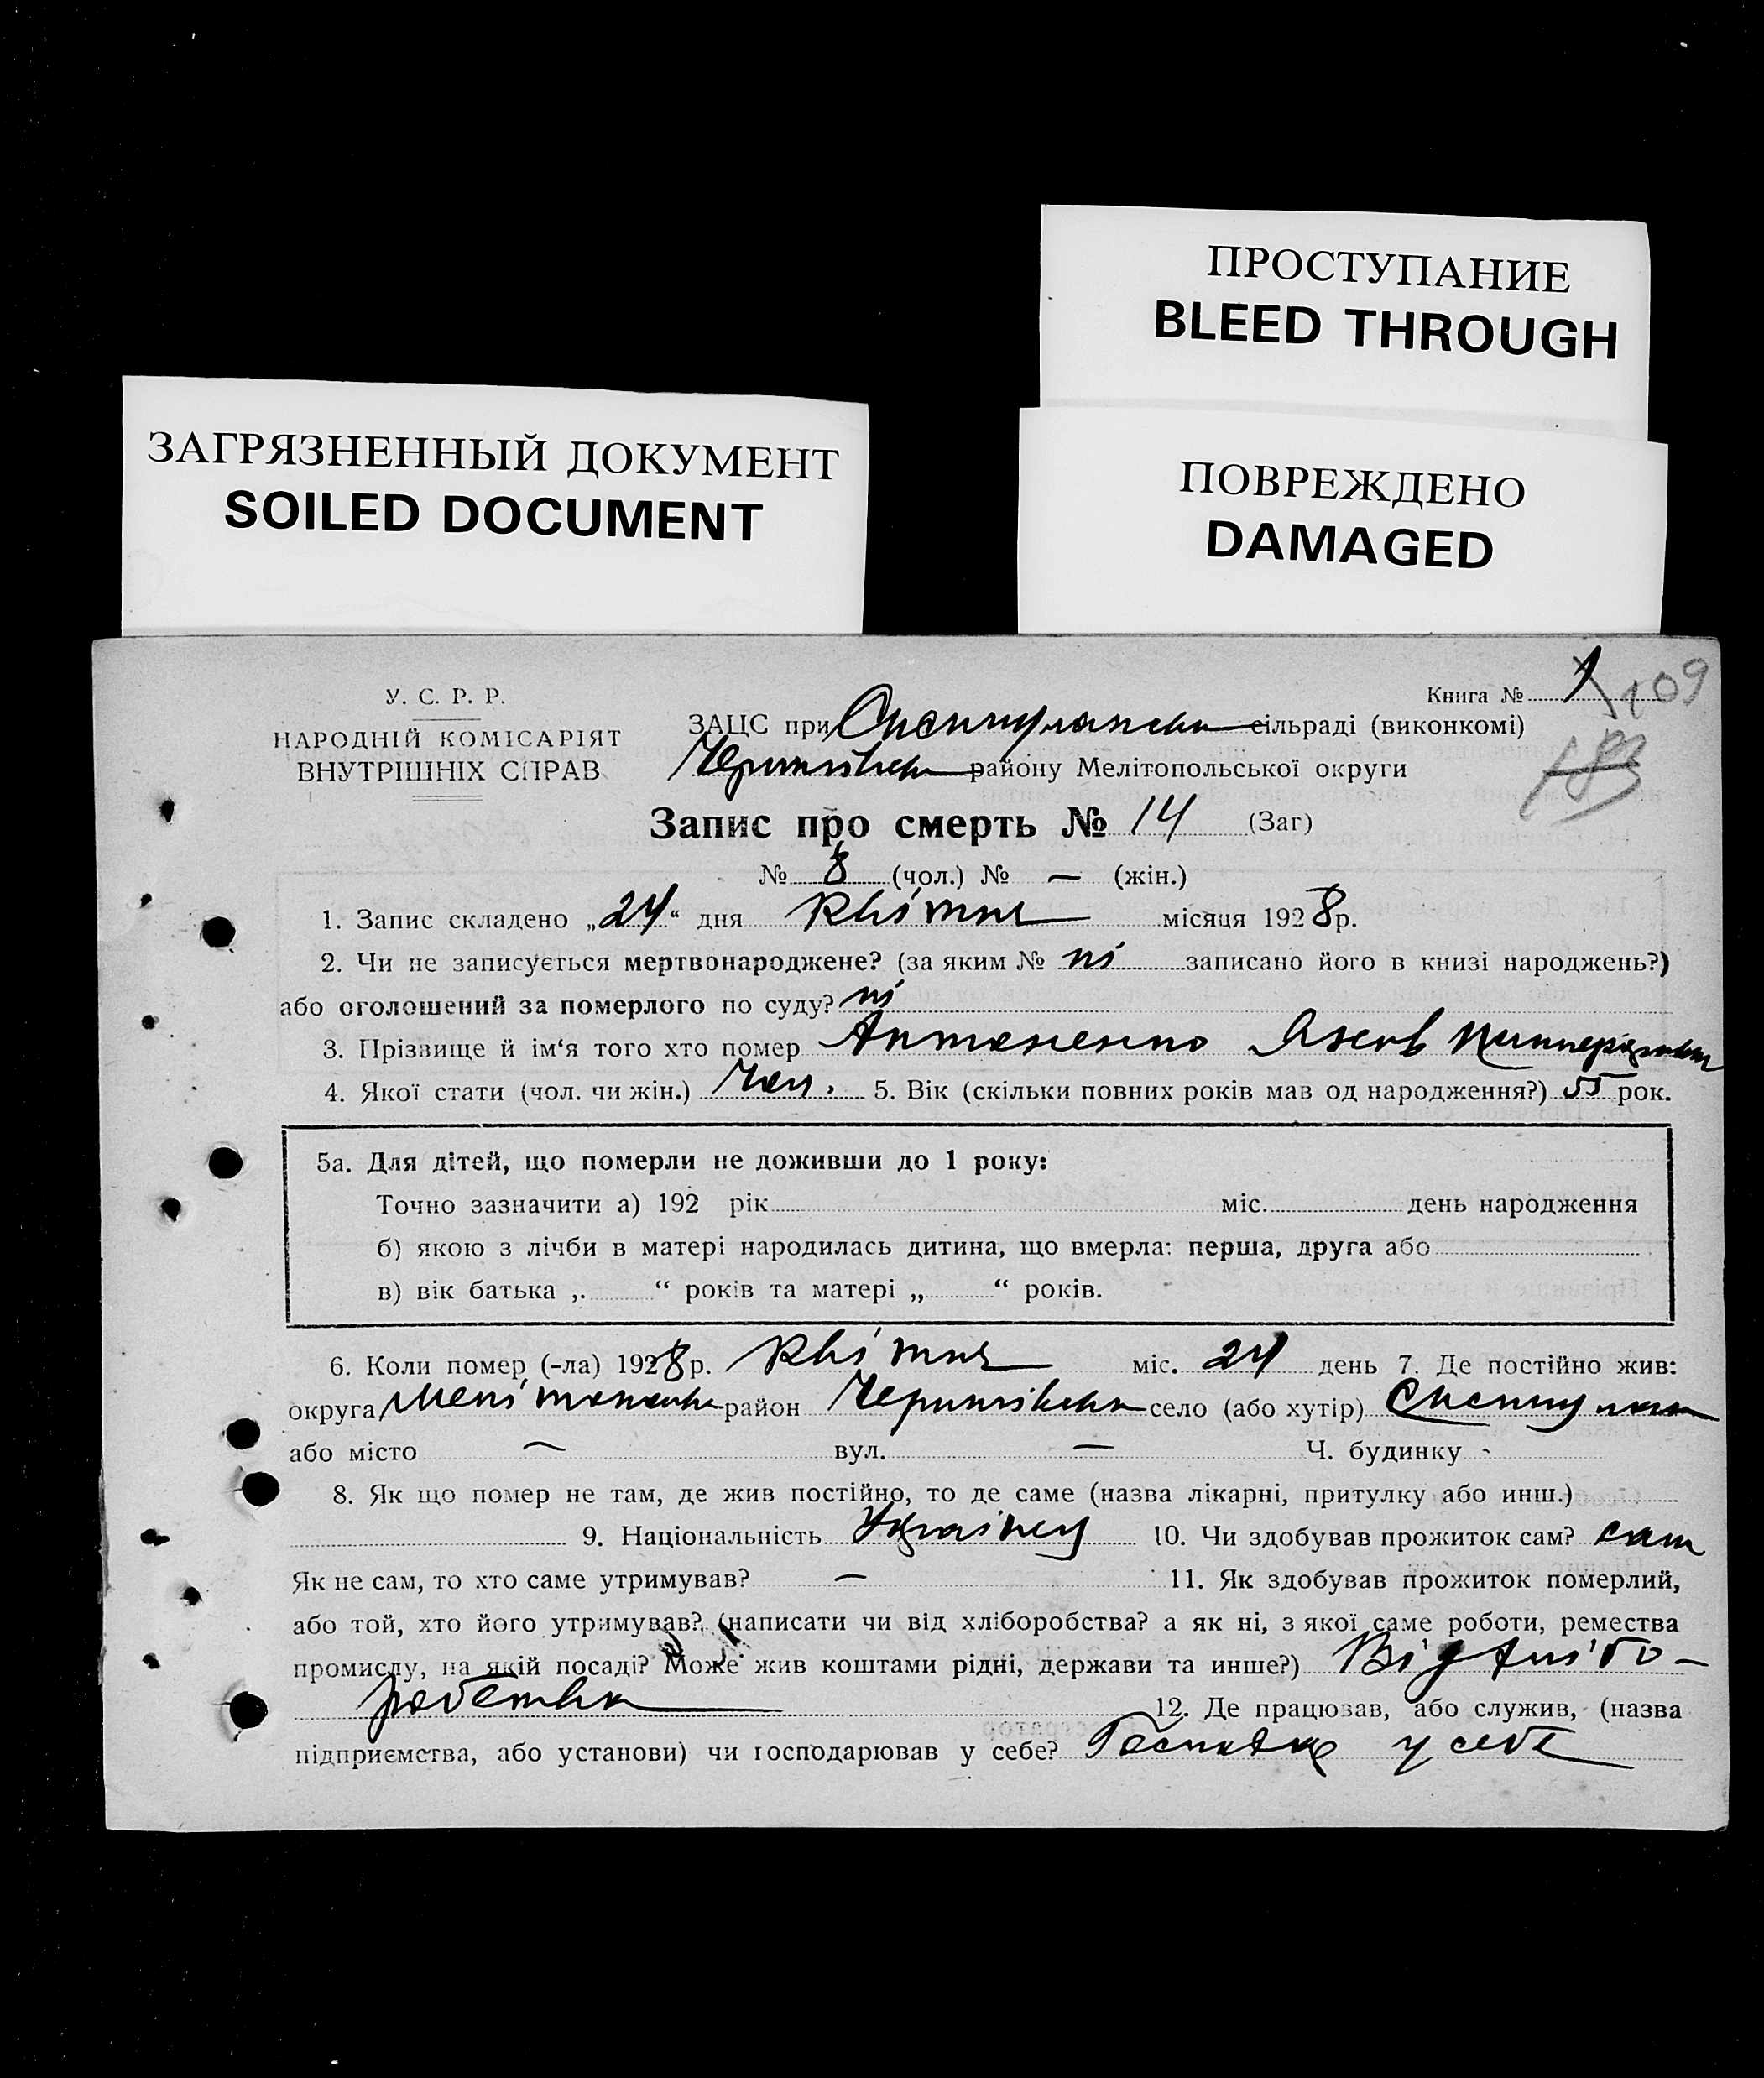 ПРОСТУПАНИЕ
BLEED THROUGH
ЗАГРЯЗНЕННЫЙ ДОКУМЕНТ
SOILED DOCUMENT
ПОВРЕЖДЕНО
DAMAGED
Книга № 1 109
У. С. Р. Р.
НАРОДНІЙ КОМІСАРІЯТ
ВНУТРІШНІХ СПРАВ
ЗАЦС при сільраді (виконкомі)
району Мелітопольської округи
Запис про смерть № 14 (Заг)
№ 8 (чол.) № — (жін.)
1. Запис складено „24“ дня квітня місяця 1928р.
2. Чи не записується мертвонароджене? (за яким № ні записано його в книзі народжень?)
або оголошений за померлого по суду? ні
3. Прізвище й ім‘я того хто помер Антоненко Яков
4. Якої стати (чол. чи жін.) Чол. 5. Вік (скільки повних років мав од народження?) 55 рок.
5а. Для дітей, що померли не доживши до 1 року:
Точно зазначити а) 192 рік міс. день народження
б) якою з лічби в матері народилась дитина, що вмерла: перша, друга або
в) вік батька „ “ років та матері „ “ років.
6. Коли помер (-ла) 1928р. квітня міс. 24 день 7. Де постійно жив:
округа район село (або хутір)
або місто — вул. — Ч. будинку -
8. Як що помер не там, де жив постійно, то де саме (назва лікарні, притулку або инш.)
9. Національність Українец 10. Чи здобував прожиток сам? сам
Як не сам, то хто саме утримував? — 11. Як здобував прожиток померлий,
або той, хто його утримував? (написати чи від хліборобства? а як ні, з якої саме роботи, ремества
промислу, на якій посаді? Може жив коштами рідні, держави та инше?) Від хлібо-
робства 12. Де працював, або служив, (назва
підприємства, або установи) чи господарював у себе? у себе